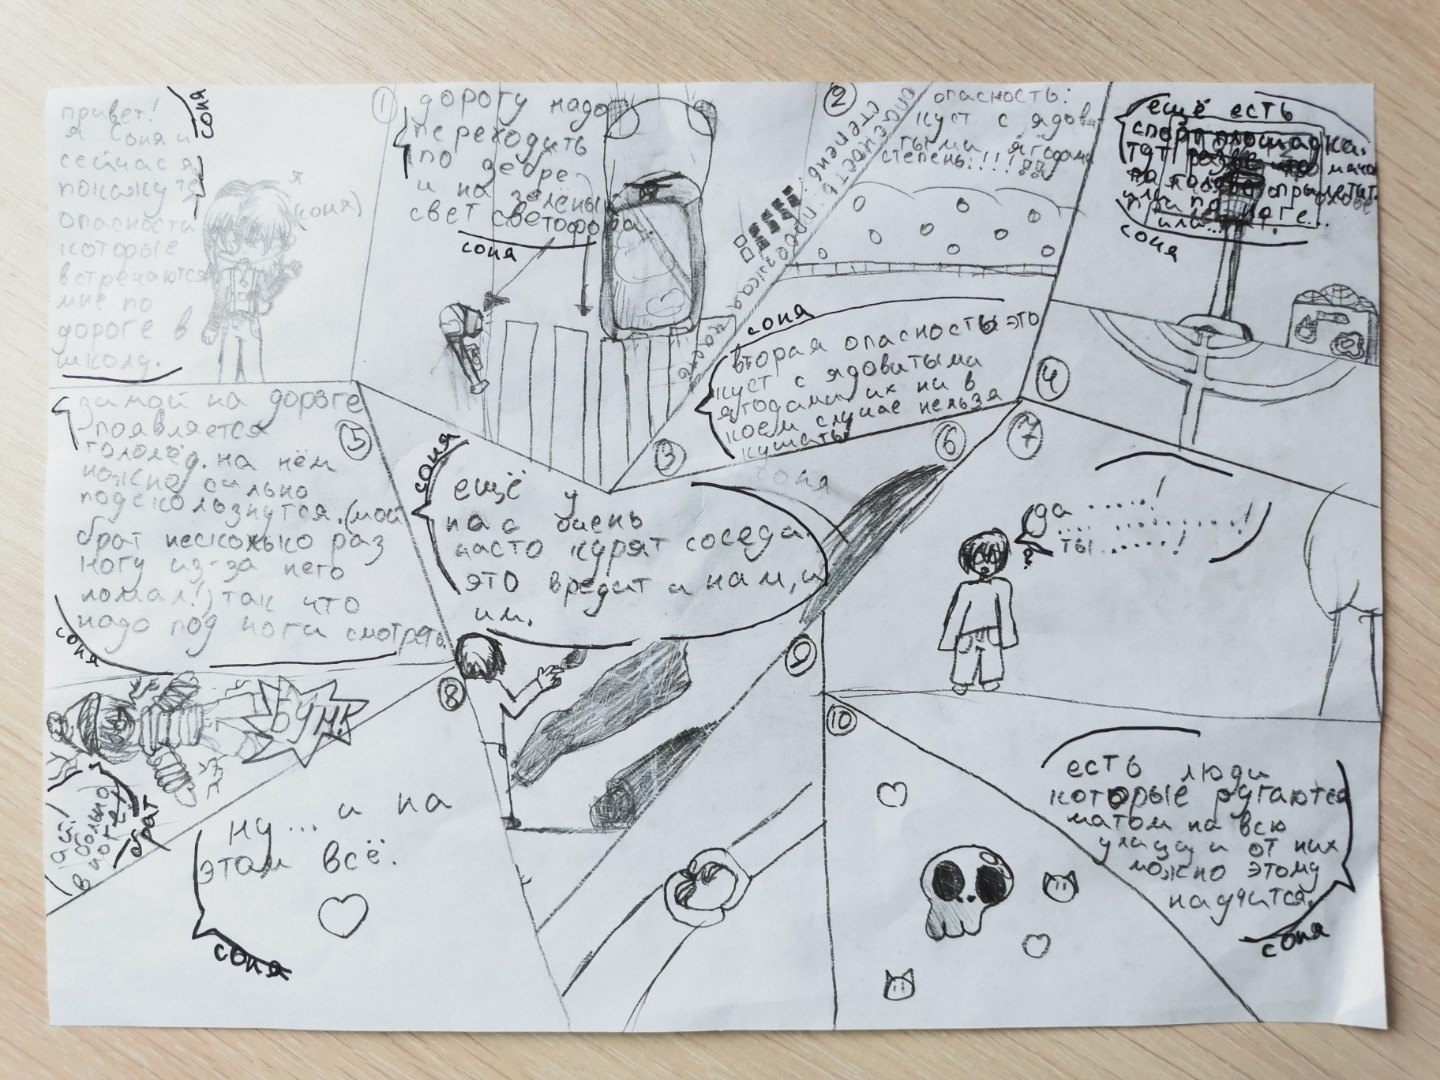 привет!
я соня и
сейчас я
покажу те
опасности
которые
встречаются
мне по
дороге в
школу.
соня
я
(соня)
1
дорогу надо
переходить
по зебре
и на зелёный
свет светофора.
соня
2
опасность: проезжая часть
степень:
опасность:
куст с ядови
тыми ягодами
степень:!!!
3
соня
вторая опасность это
куст с ядовитыми
ягодами их ни в
коем случае нельзя
кушать
4
ещё есть
спортплощадка.
тут разве что мячом
по голове
или по ноге...
или...
соня
5
зимой на дороге
появляется
гололёд. на нём
можно сильно
подскользнутся. (мой
брат несколько раз
ногу из-за него
ломал!) так что
надо под ноги смотреть.
соня
БУМ!
ай!
больно
в ноге!
брат
6
соня
соня
ещё у
нас очень
часто курят соседи.
это вредит и нам, и
им.
7
да ......!
.... ..........!
ты ......!
8
ну... и на
этом всё.
соня
9
10
есть люди
которые ругаются
матом на всю
улицу и от них
можно этому
научится.
соня